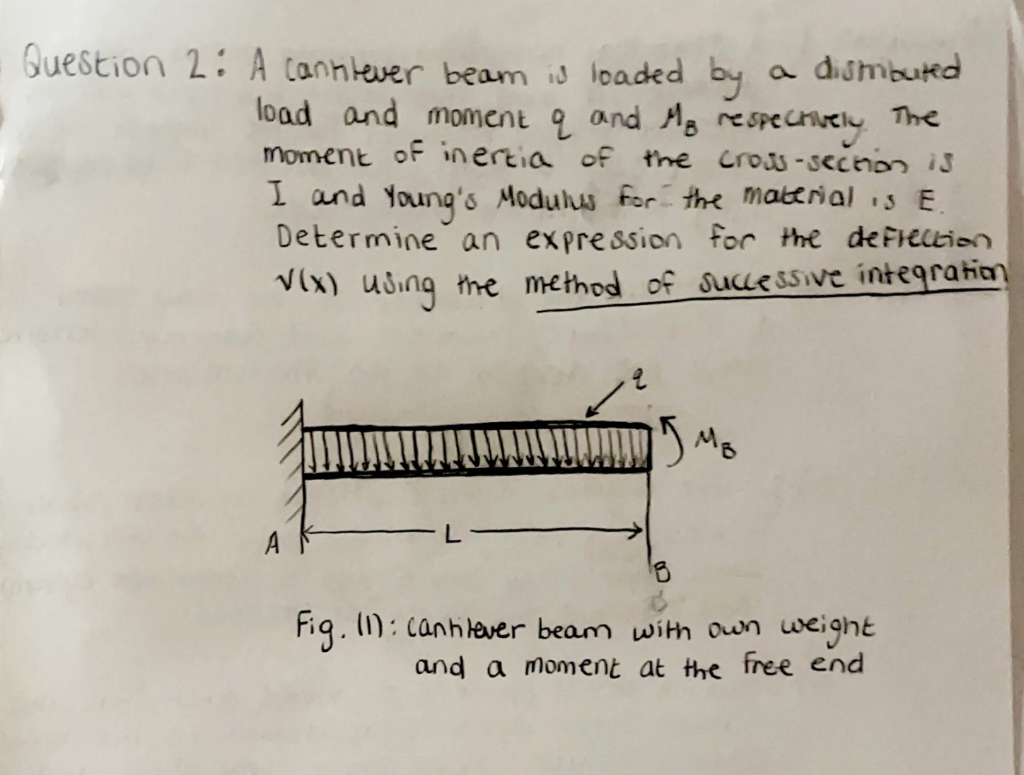 Question 2: A cantilever beam is loaded by a distributed
load and moment q and MB respectively. The
moment of inertia of the cross-section is
I and Young's Modulus for the material is E.
Determine an expression for the deflection
v(x) using the method of successive integration
q
MB
L
A
B
Fig. (1): cantilever beam with own weight
and a moment at the free end